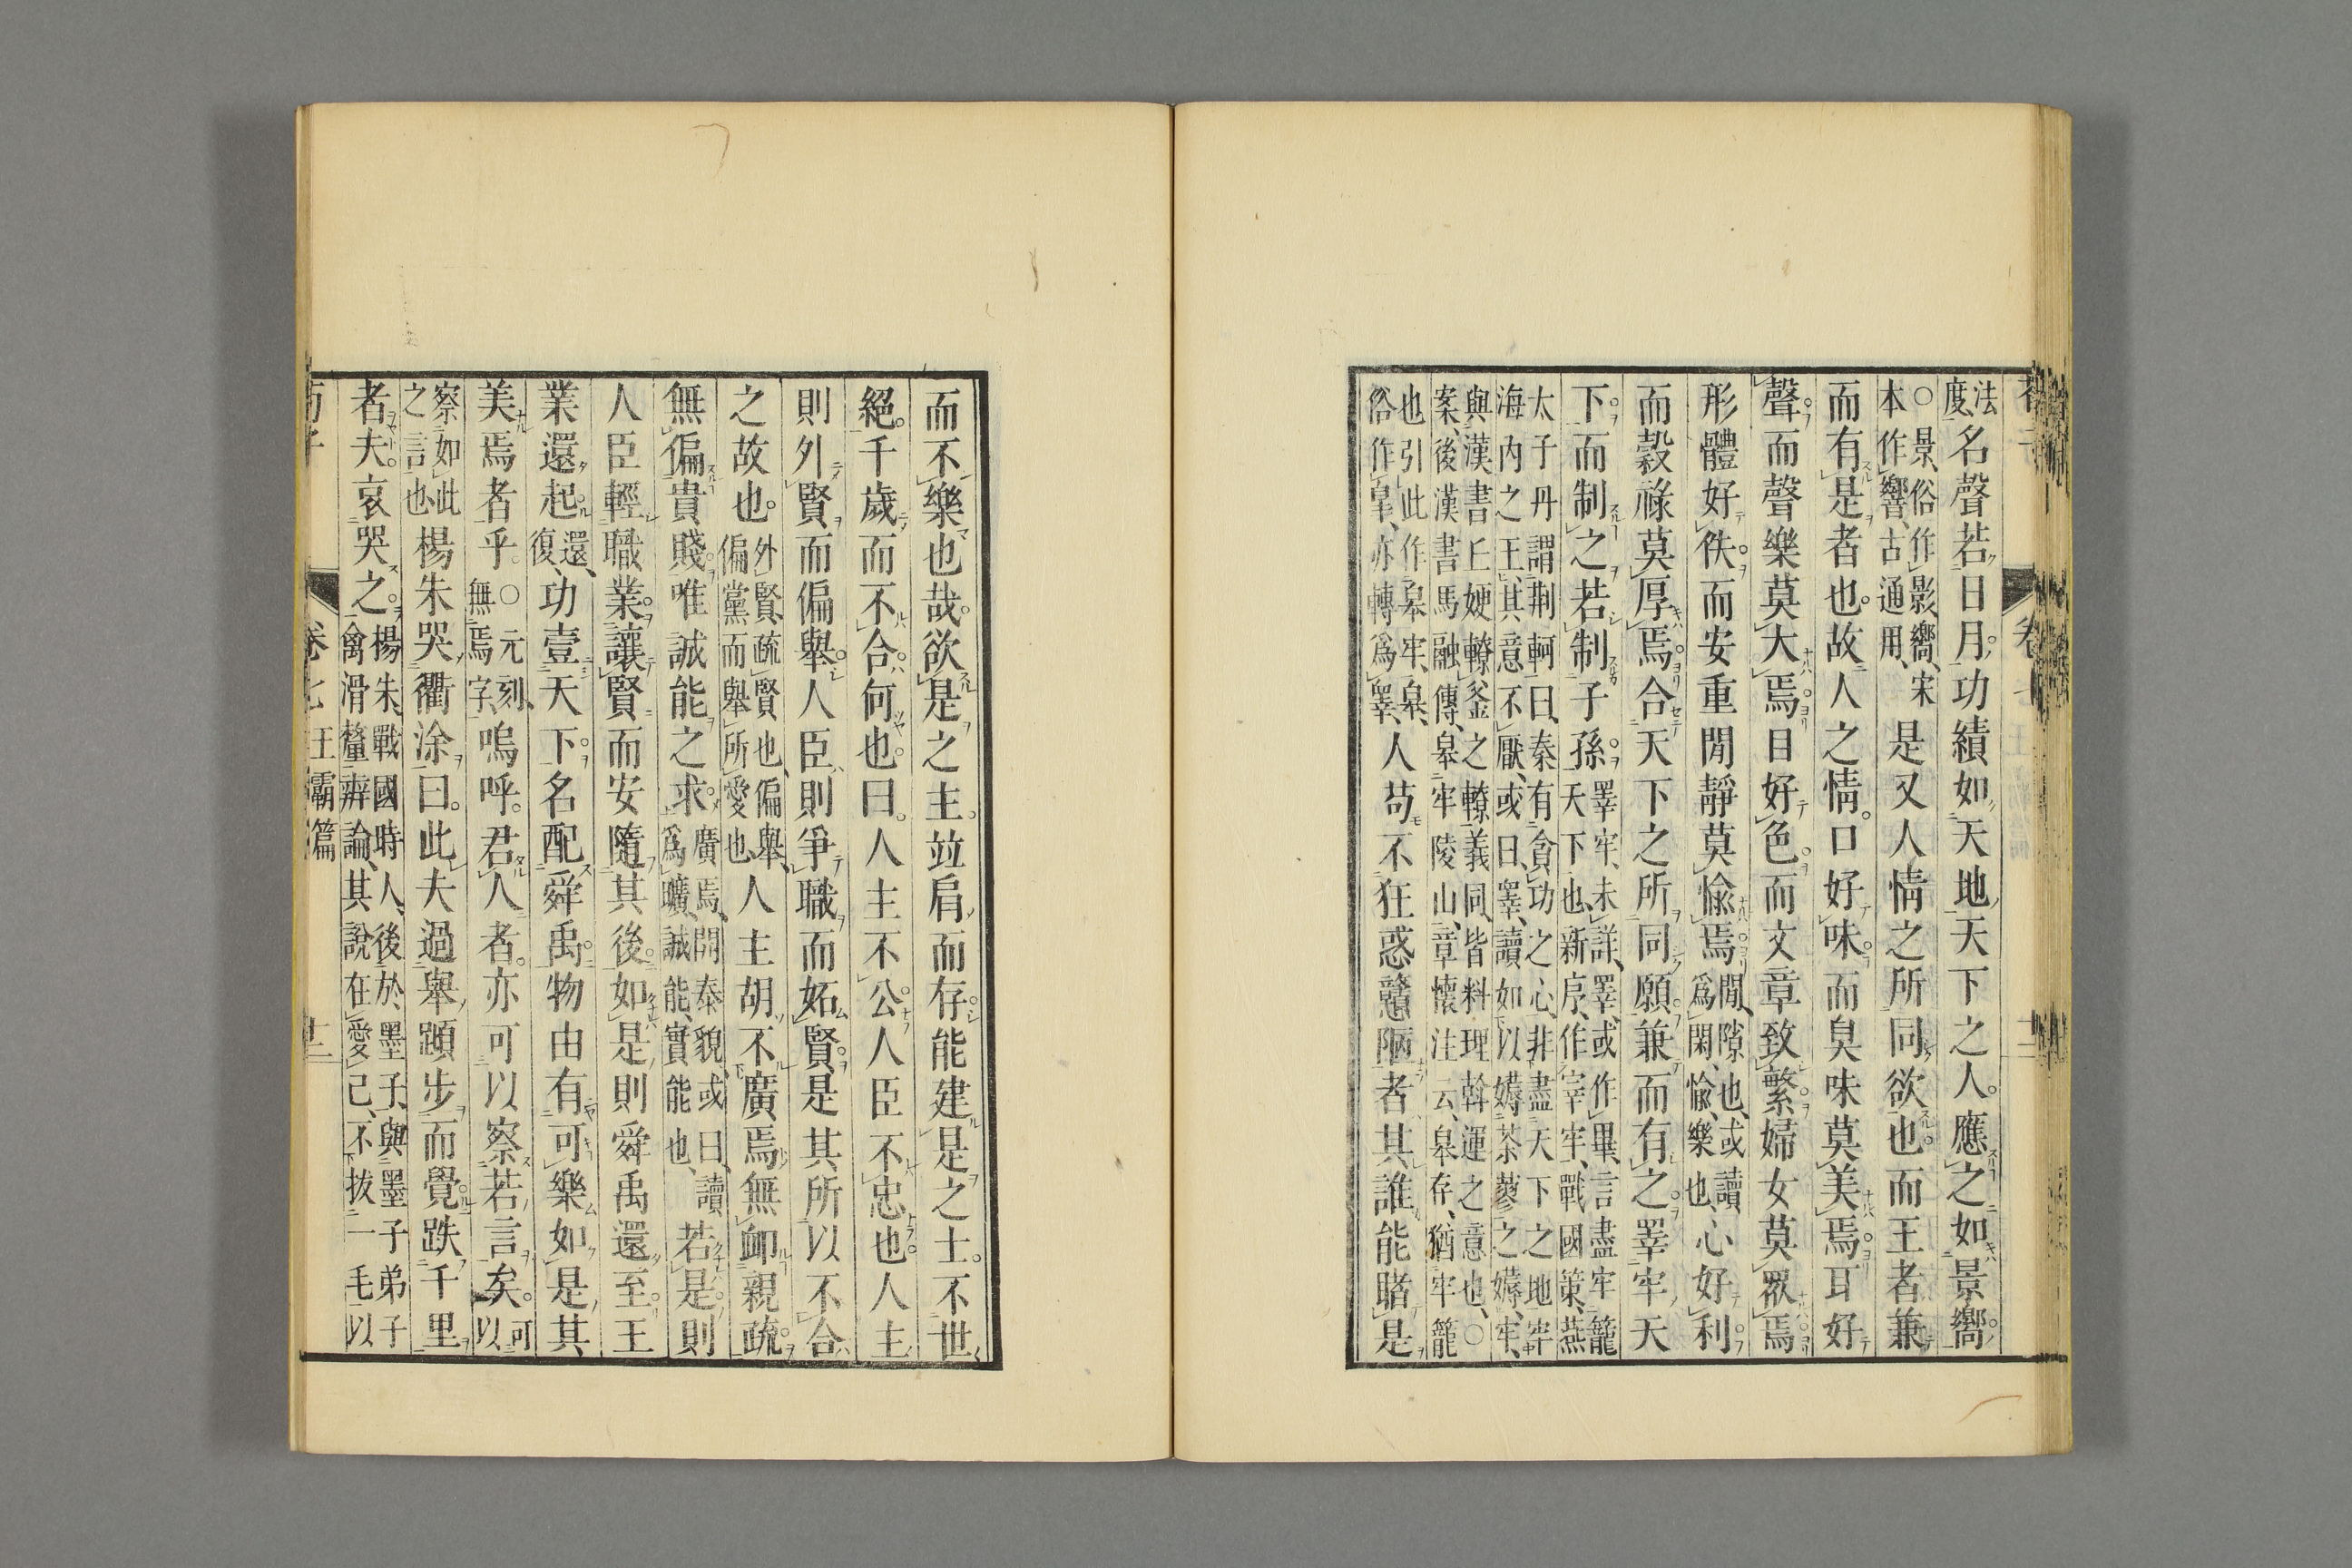 法度、名聲若日月功績如天地天下之人應之如景嚮
○景、俗作影、嚮、宋本作響、古通用、是又人情之所同欲也而王者兼
而有是者也故人之情口好味而臭味莫美焉耳好
聲而聲樂莫大焉目好色而文章致繁婦女莫衆焉
形體好佚而安重閒靜莫愉焉閒、隙也、或讀爲閑、愉、樂也、心好利
而穀祿莫厚焉合天下之所同願兼而有之睪牢天
下而制之若制子孫睪牢、未詳、睪、或作畢、言盡牢籠天下也、新序、作宰牢、戰國策、燕
太子丹謂荆軻曰、秦有貪功之心、非盡天下之地牢海内之王、其意不厭、或曰、睪、讀如以薅荼蓼之薅、牢、
與漢書丘嫂轑釜之轑義同、皆料理斡運之意也、○案、後漢書馬融傳、皋牢陵山、章懷注云、皋存、猶牢籠
也、引此作皋牢、皋、俗作臯、亦轉爲睪、人苟不狂惑戇陋者其誰能睹是
而不樂也哉欲是之主竝肩而存能建是之士不世
絕千歲而不合何也曰人主不公人臣不忠也人主
則外賢而偏舉人臣則爭職而妬賢是其所以不合
之故也外賢、疏賢也、偏舉、偏黨而舉所愛也人主胡不廣焉無卹親疏
無偏貴賤唯誠能之求廣焉、開泰貌、或曰、讀爲曠、誠能、實能也、若是則
人臣輕職業讓賢而安隨其後如是則舜禹還至王
業還起還、復、功壹天下名配舜禹物由有可樂如是其
美焉者乎○元刻、無焉字、嗚呼君人者亦可以察若言矣可以
察如此之言也楊朱哭衢涂曰此夫過舉蹞步而覺跌千里
者夫哀哭之楊朱、戰國時人、後於墨子、與墨子弟子禽滑釐辨論、其說在愛己、不拔一毛以
荀子 卷七 王霸篇 十二